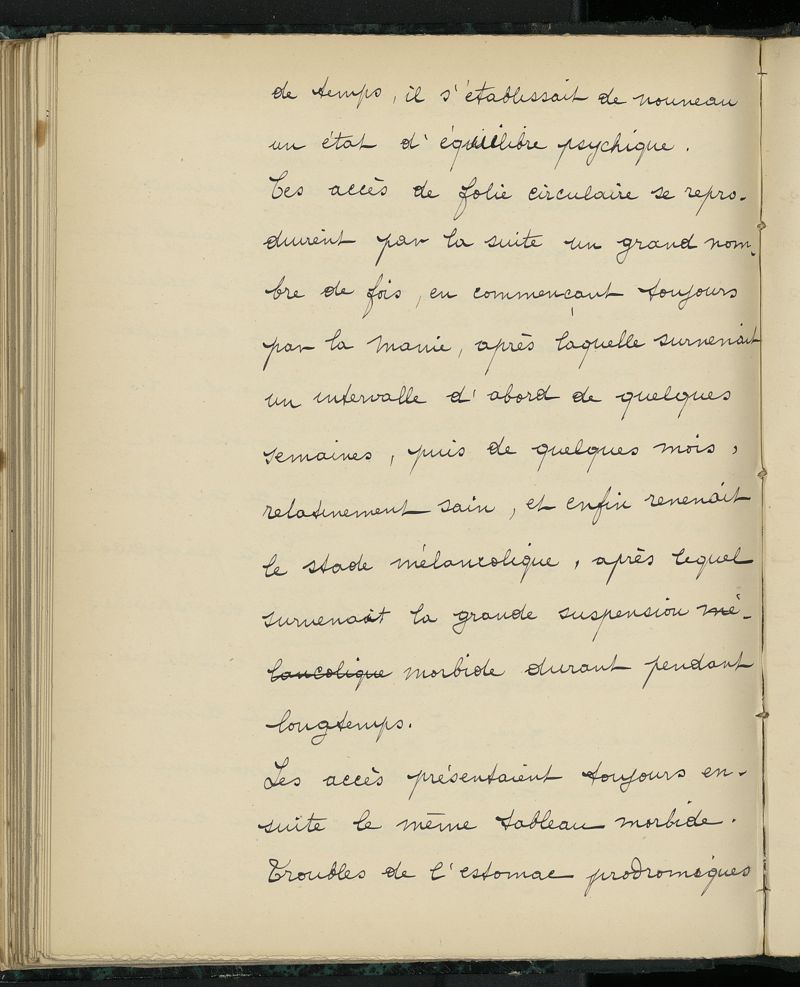 de temps, il s'établissait de nouveau
un état d'équilibre psychique.
Ces accès de folie circulaire se repro-
duirent par la suite un grand nom-
bre de fois, en commençant toujours
par la manie, après laquelle survenait
un intervalle d'abord de quelques
semaines, puis de quelques mois,
relativement sain, et enfin revenait
le stade mélancolique, après lequel
survenait la grande suspension mé-
lancolique morbide durant pendant
longtemps.
Les accès présentaient toujours en-
suite le même tableau morbide.
Troubles de l'estomac prodromiques